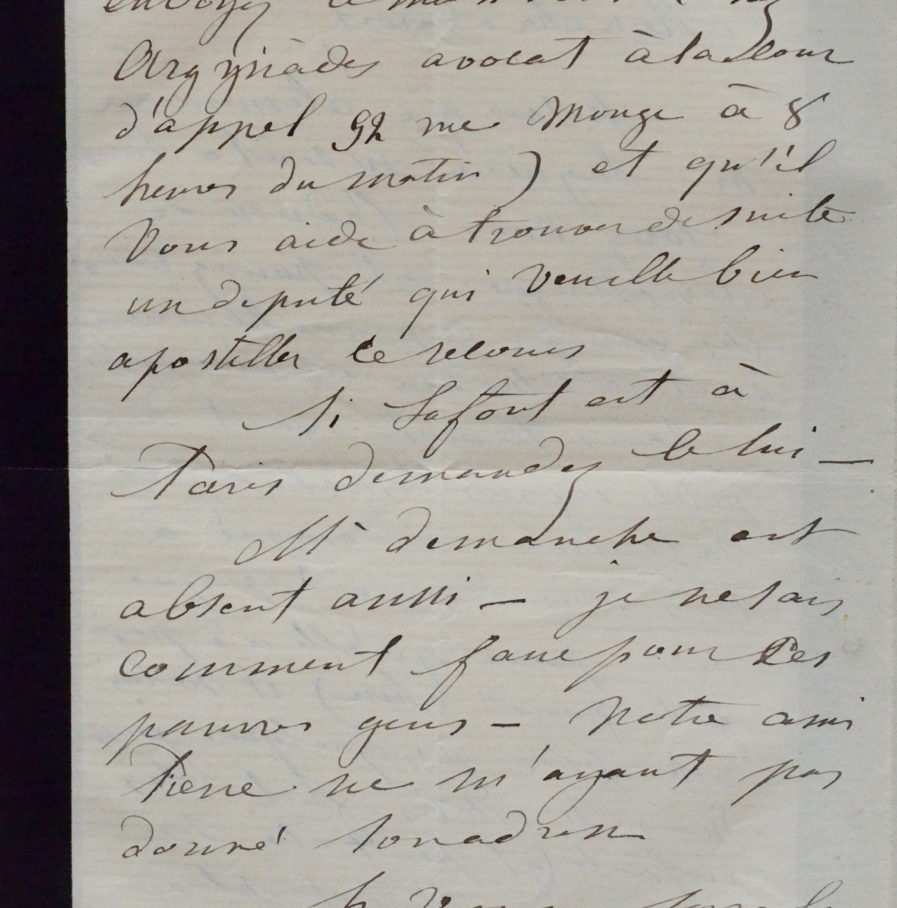 envoyez ce matin
Argyriadès avocat à la Cour
d'appel 92 rue Monge à 8
heures du matin) et qu'il
vous aide à trouver de suite
un député qui veuille bien
apostiller ce recours
Si Lafont est à
Paris demandez le lui —
Mr demanche est
absent aussi — je ne sais
comment faire pour ces
pauvres gens — notre ami
Pierre ne m'ayant pas
donné son adresse